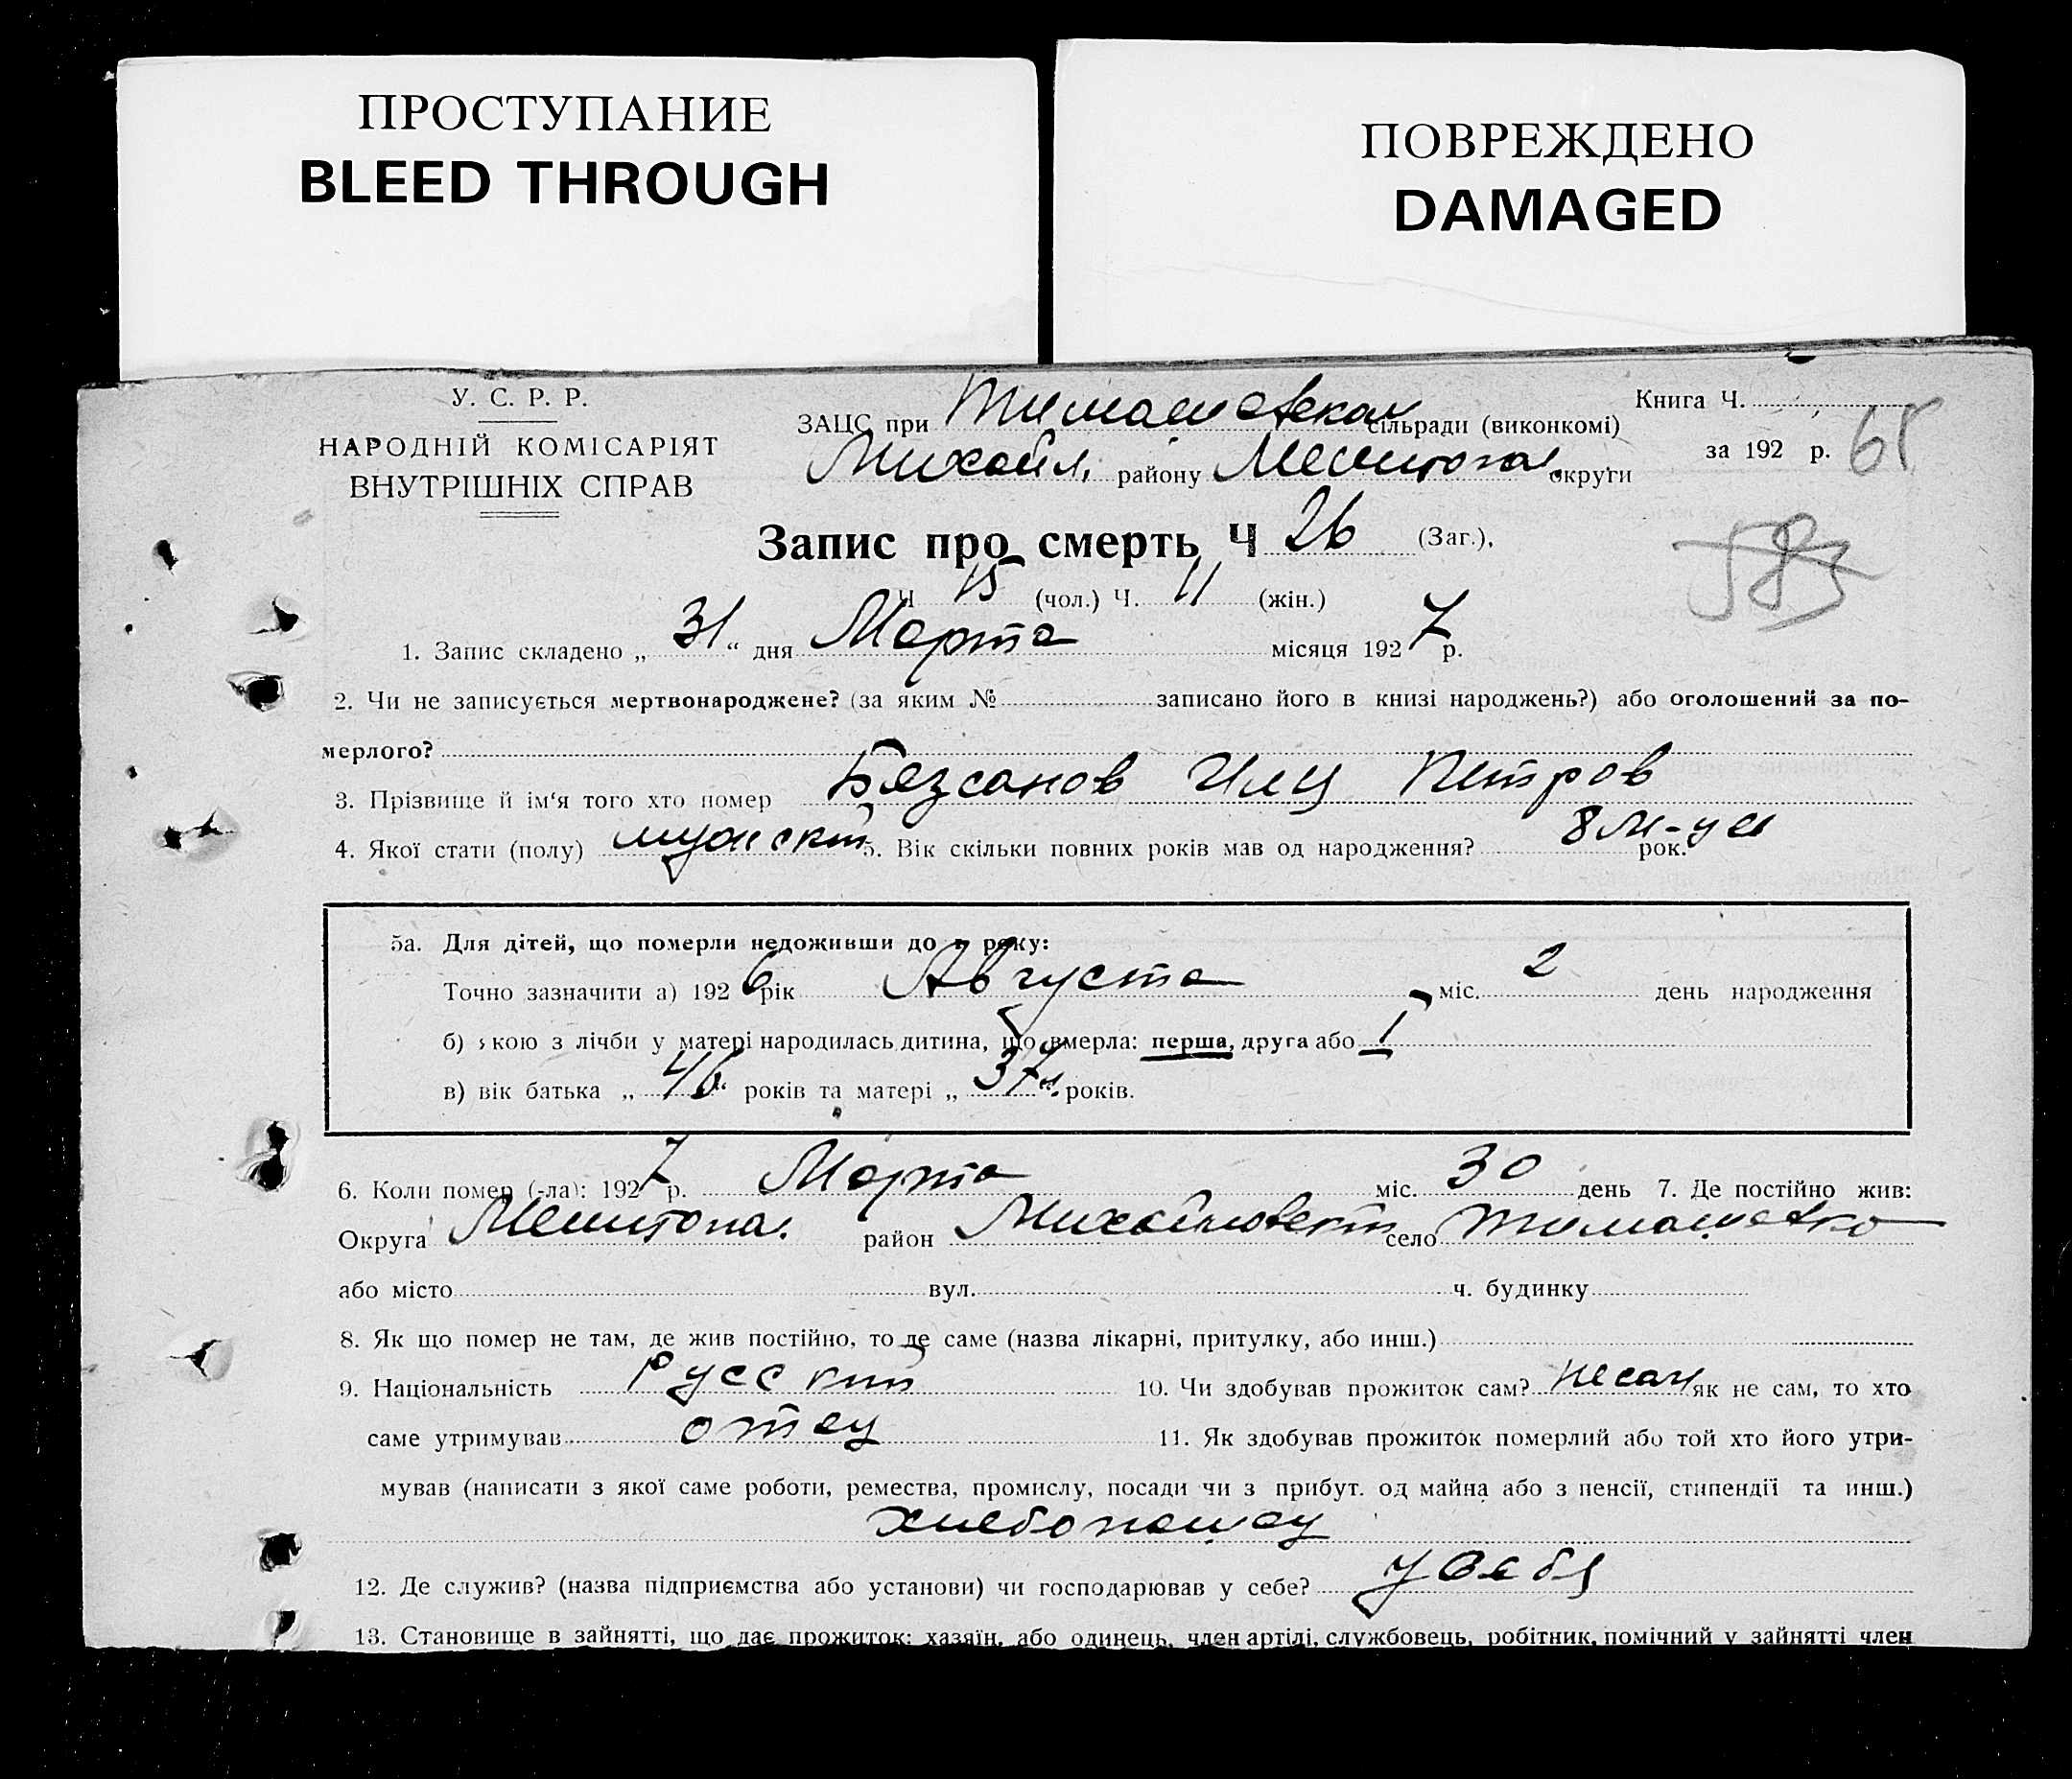 ПРОСТУПАНИЕ
BLEED THROUGH
ПОВРЕЖДЕНО
DAMAGED
У. С. Р. Р.
НАРОДНІЙ КОМІСАРІЯТ
ВНУТРІШНІХ СПРАВ
ЗАЦС при Тимашевской сільради (виконкомі)
Михайл. району Мелитопол. округи
Книга Ч.
за 192 р. 65
583
Запис про смерть Ч 26 (Заг.),
Ч 15 (чол.) Ч. 11 (жін.)
1. Запис складено „ 31 “ дня Марта місяця 1927 р.
2. Чи не записується мертвонароджене? (за яким № записано його в книзі народжень?) або оголошений за по-
мерлого?
3. Прізвище й ім‘я того хто помер Петров
4. Якої стати (полу) мужск 5. Вік скільки повних років мав од народження? 8 м-ця рок.
5а. Для дітей, що померли недоживши до року:
Точно зазначити а) 1926 рік Августа міс. 2 день народження
б) якою з лічби у матері народилась дитина, що вмерла: перша, друга або
в) вік батька „ 46 “ років та матері „ 37 “ років.
6. Коли помер (-ла): 1927 р. Марта міс. 30 день 7. Де постійно жив:
Округа Мелитопол. район Михайловск село Тимашевка
або місто вул. ч. будинку
8. Як що помер не там, де жив постійно, то де саме (назва лікарні, притулку, або инш.)
9. Національність Русский 10. Чи здобував прожиток сам? не сам як не сам, то хто
саме утримував отец 11. Як здобував прожиток померлий або той хто його утри-
мував (написати з якої саме роботи, ремества, промислу, посади чи з прибут. од майна або з пенсії, стипендії та инш.)
хлебопашец
12. Де служив? (назва підприємства або установи) чи господарював у себе? у себя
13. Становище в зайнятті, що дає прожиток: хазяїн, або одинець, член артілі, службовець, робітник, помічний у зайнятті член